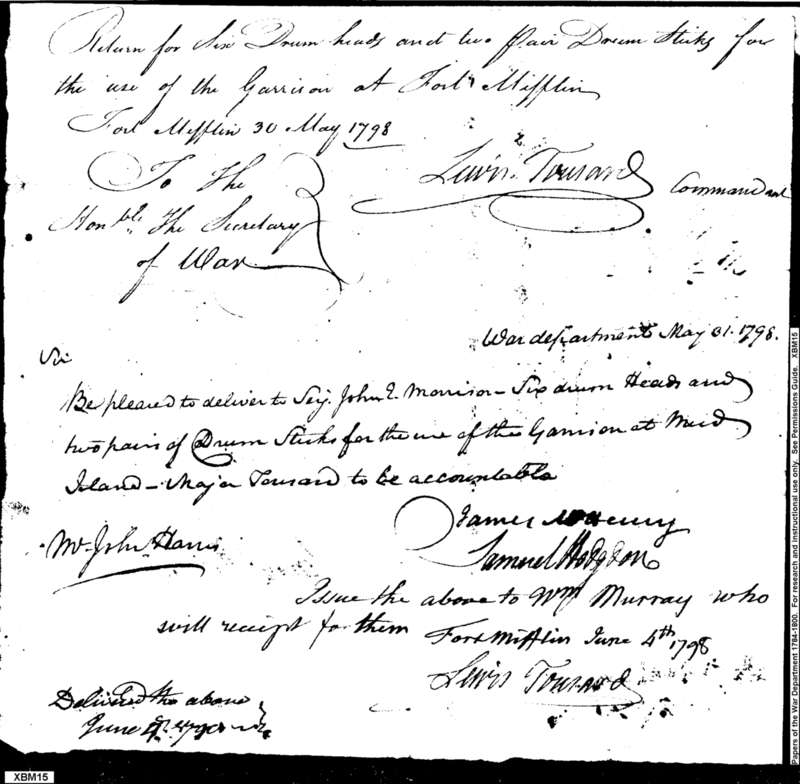 Return for Six Drum heads and two Pair Drum Sticks for
the use of the Garrison at Fort Mifflin
Fort Mifflin 30 May 1798
To the
Honble. the Secretary
of War
Lewis Tousard
Commandant
War department May 31. 1798.
Sir
Be pleased to deliver to Serj. John E. Morrison - Six drum Heads and
two pairs of Drum Sticks for the use of the Garrison at Mud
Island - Major Tousard to be accountable
James McHenry
Mr. John Harris
Samuel Hodgdon
Issue the above to Wm Murray who
will receipt for them
Fort Mifflin June 4th 1798
Lewis Tousard
Delivered the above
June 4th 1798
XBM15
Papers of the War Department 1784-1800. For research and instructional use only. See Permissions Guide. XBM15